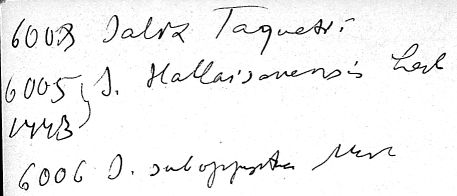 6003 Salix Taquetii
6005 S. Hallaisanensis Levl
1443
6006 S. subopposita Miq